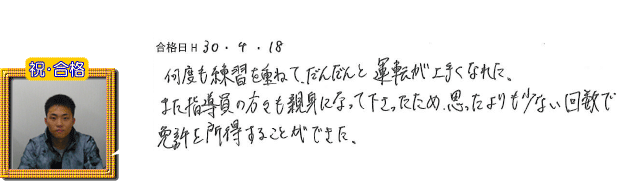 合格日 H 30・9・18
祝・合格
何度も練習を重ねて、だんだんと運転が上手くなれた。
また指導員の方々も親身になって下さったため、思ったよりも少ない回数で
免許を所得することができた。